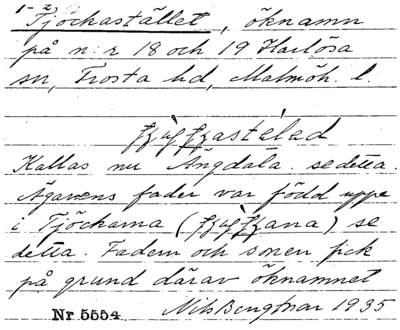 1-2
Tjöckastället, öknamn
på n:r 18 och 19 Harlösa
sn, Frosta hd, Malmöh. l.
Kallas nu Ängdala. se detta.
Ägarens fader var född uppe
i Tjöckarna se
detta. Fadern och sonen fick
på grund därav öknamnet
Nr 5554 Nils Bengtsson 1935